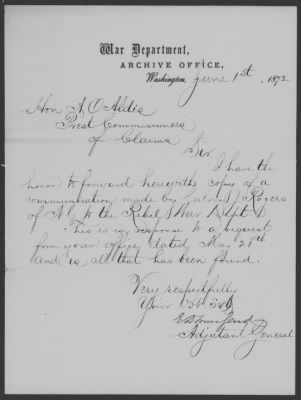 War Department,
ARCHIVE OFFICE,
Washington, June 1st, 1872
Hon A. O. Aldis
Prest Commissioners
of Claims
Sir
I have the
honor to forward herewith copy of a
communication made by
of N.C. to the Rebel War Dept
This is in response to a request
from your office dated May 28th
and is all that has been found.
Very respectfully
Your Obt Svt
E D Townsend
Adjutant General